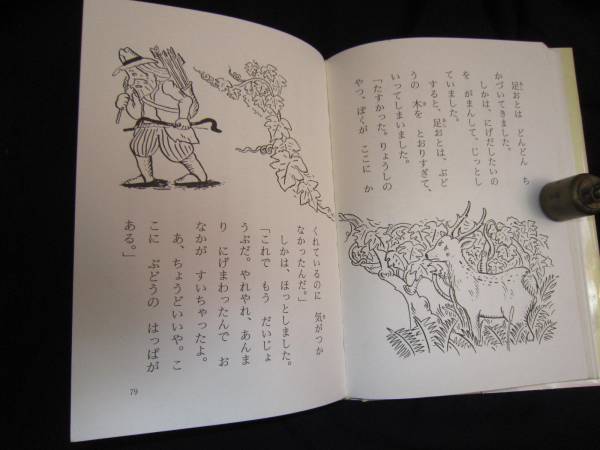 足おとは どんどん ち
かづいてきました。
しかは、にげだしたいの
を がまんして、じっとし
ていました。
すると、足おとは、ぶど
うの 木を とおりすぎて、
いってしまいました。
「たすかった。りょうしの
やつ、ぼくが ここに か
くれているのに 気がつか
なかったんだ。」
しかは、ほっとしました。
「これで もう だいじょ
うぶだ。やれやれ、あんま
り にげまわったんで お
なかが すいちゃったよ。
あ、ちょうどいいや。こ
こに ぶどうの はっぱが
ある。」
79